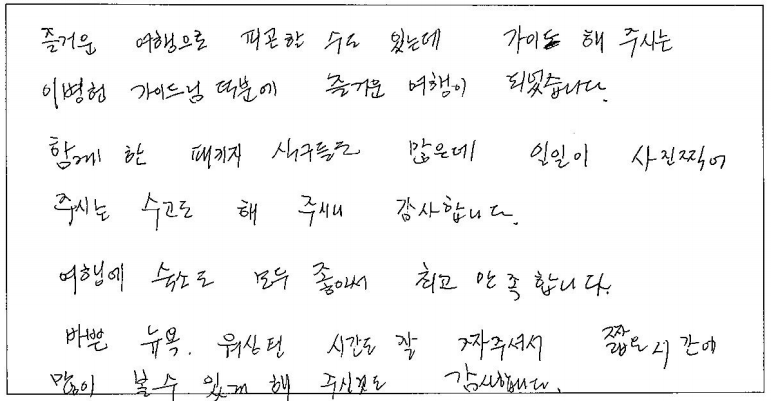 즐거운 여행으로 피곤한 수도 있는데 가이드 해 주시는
이병헌 가이드님 덕분에 즐거운 여행이 되었습니다.
함께 한 패키지 식구들도 많은데 일일이 사진찍어
주시는 수고도 해 주시니 감사합니다.
여행에 숙소도 모두 좋아서 최고 만족합니다.
바쁜 뉴욕. 워싱턴 시간도 잘 짜주셔서 짧은시간에
많이 볼 수 있게 해 주신것도 감사합니다.